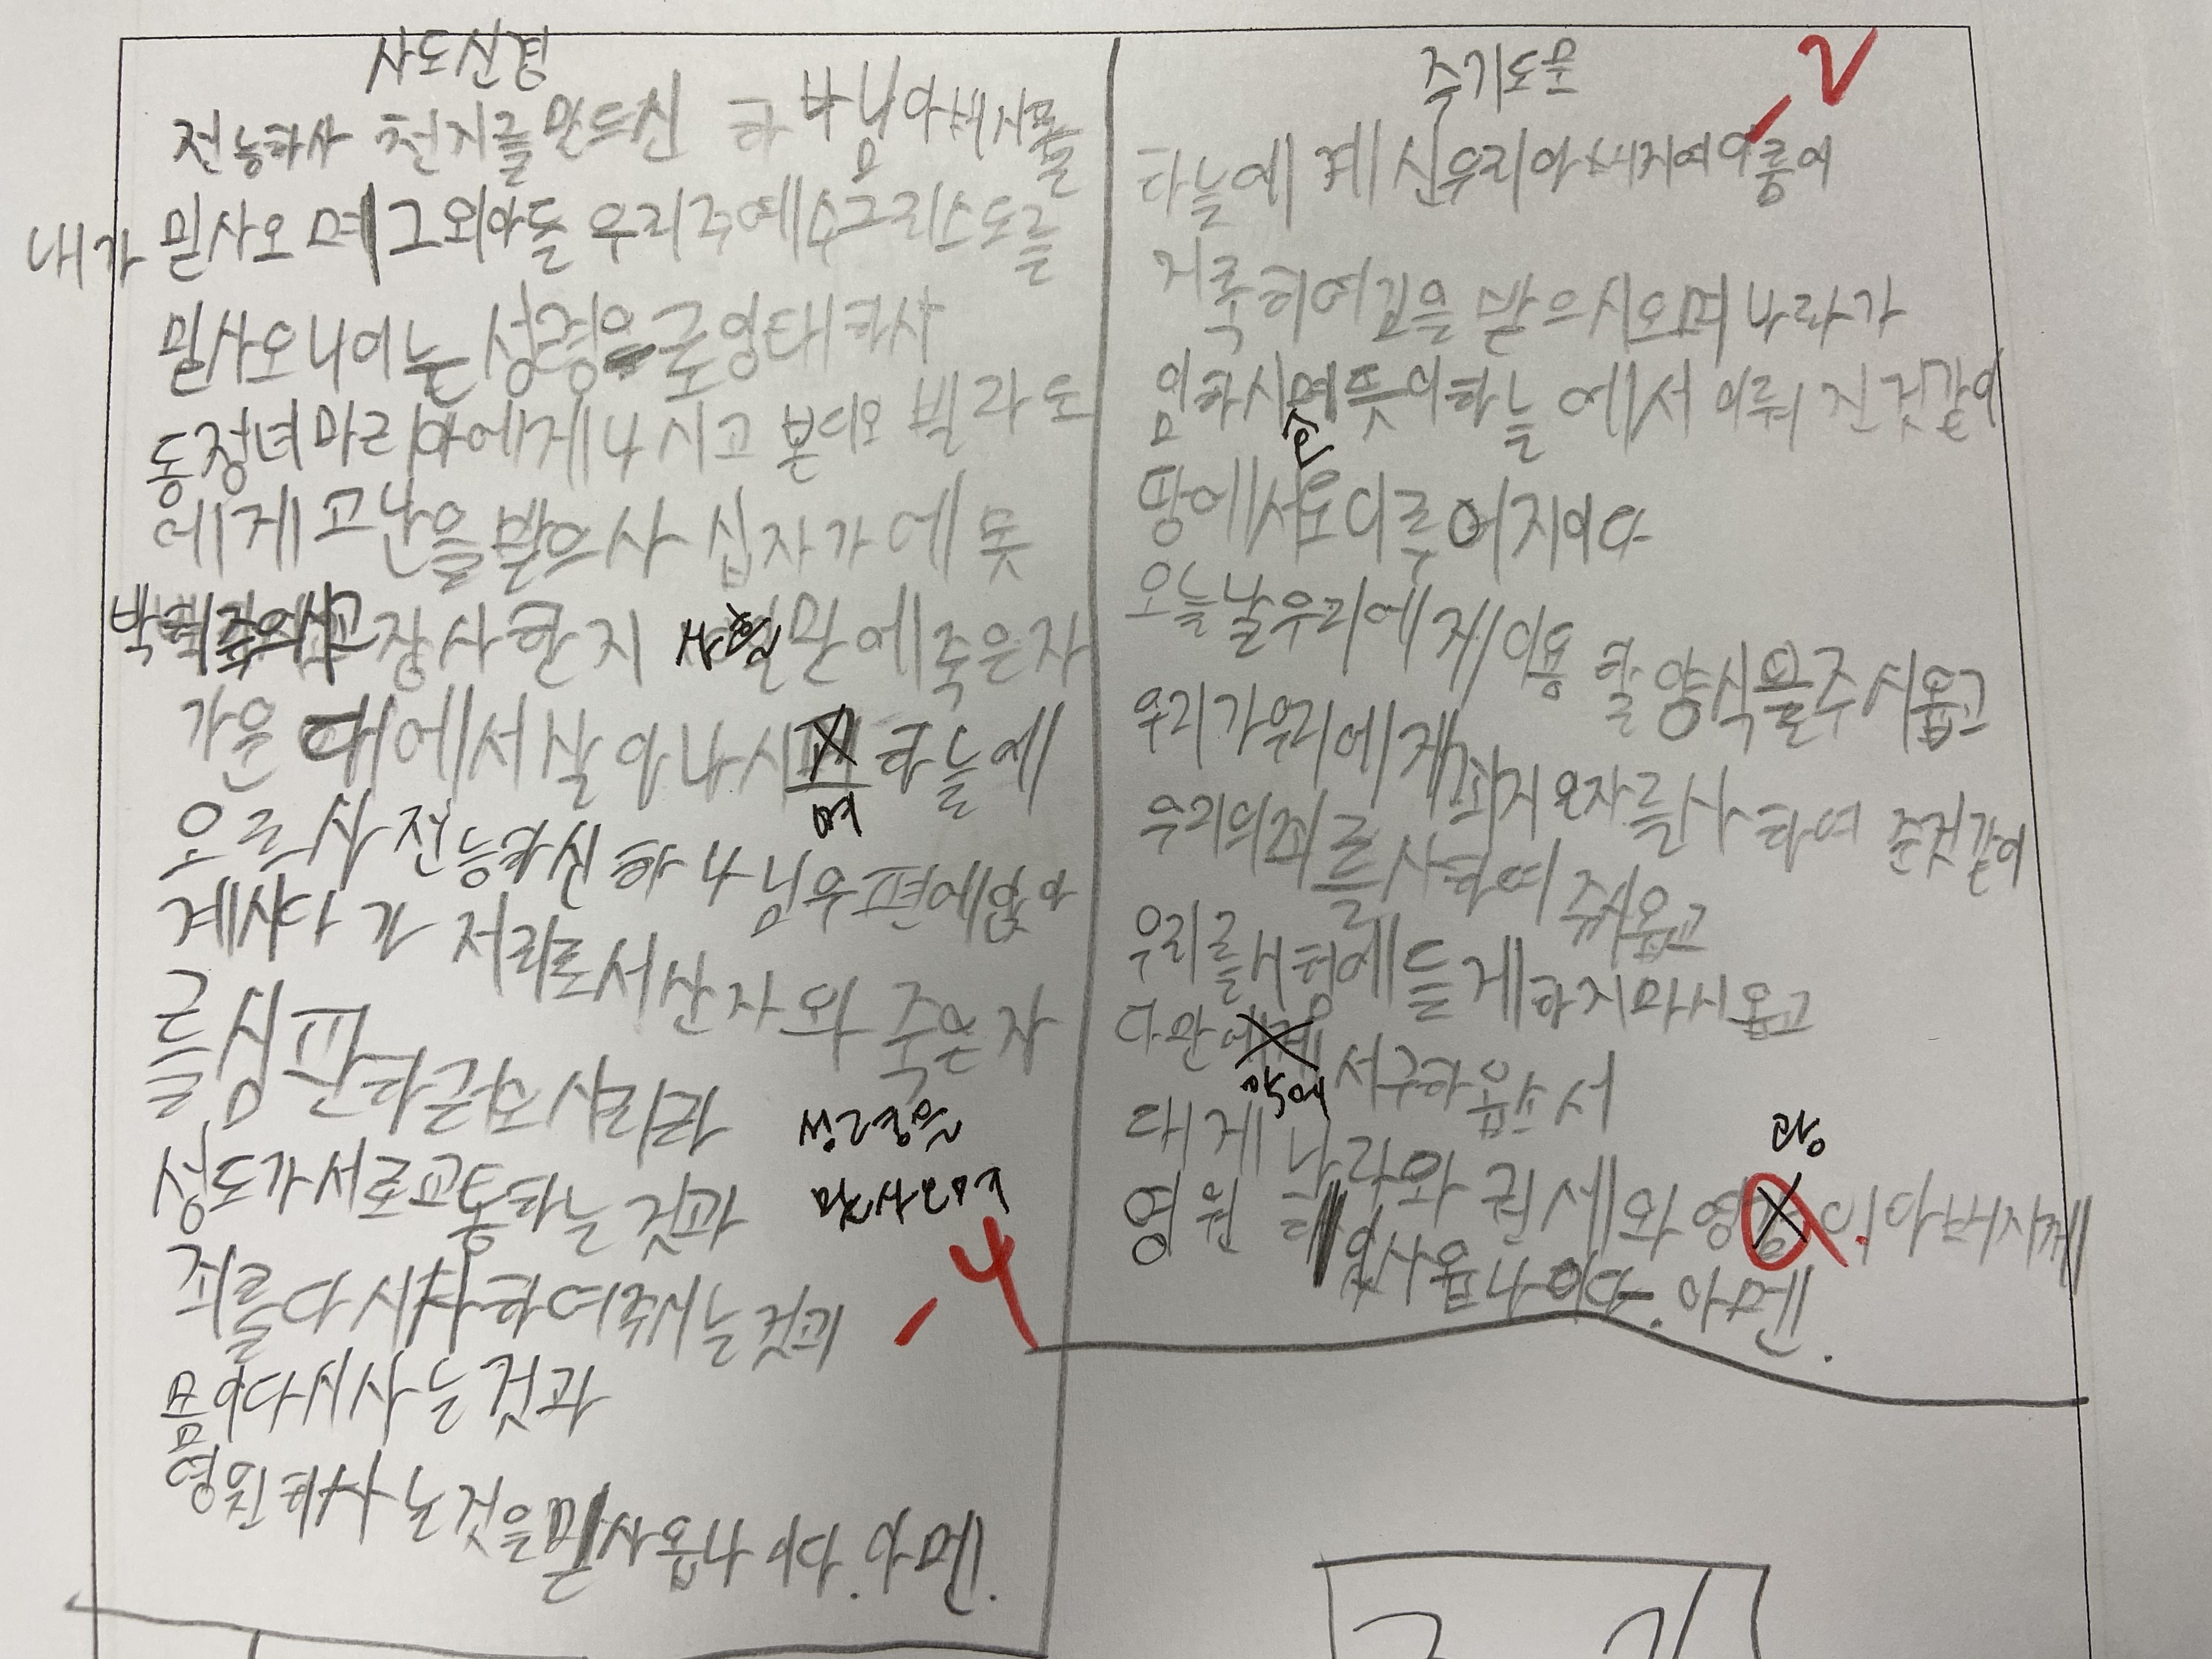 사도신경
전능하사 천지를 만드신 하나님 아버지를
내가 믿사오며 그 외아들 우리 주 예수 그리스도를
믿사오니 이는 성령으로 잉태하사
동정녀 마리아에게 나시고 본디오 빌라도
에게 고난을 받으사 십자가에 못
박혀 죽으시고 장사한지 사흘만에 죽은자
가운대에서 살아나시고 하늘에
며
오르사 전능하신 하나님 우편에 앉아
계시다가 저리로서 산자와 죽은자
를 심판하러 오시리라
성령을
믿사오며
성도가 서로 교통하는 것과
죄를 다 시사하여 주시는 것과
몸이 다시 사는 것과
영원히 사는 것을 믿사옵나이다. 아멘.
-4
주기도문
-2
하늘에 계신 우리 아버지여 이름이
거룩히 여김을 받으시오며 나라가
임하시며 뜻이 하늘에서 이뤄진것 같이
땅에서도 이루어지이다
오늘날 우리에게 이용할 양식을 주시옵고
우리가 우리에게 죄지은자를 사하여 준것 같이
우리의 죄를 사하여 주시옵고
우리를 시험에 들게하지 마시옵고
다만 서 구하옵소서
악에
대게 나라와 권세와 영 이 아버지께
광
영원히 있사옵나이다. 아멘.